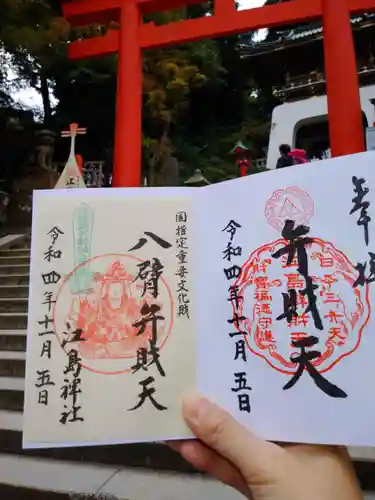 奉拝
弁財天
令和四年十一月五日
国指定重要文化財
八臂弁財天
江島神社
令和四年十一月五日